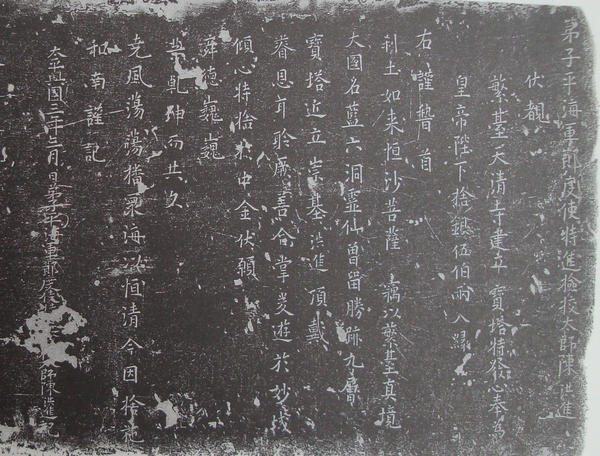 弟子平海軍節度使特進檢挍太師陳洪進
伏覩
繁臺天清寺建立寶塔特發心奉為
皇帝陛下捨銀伍伯兩入緣
右謹稽首
刹土如来恒沙菩薩竊以繁基真境
大國名藍六洞霊仙曾留勝跡九層
寶塔近立崇基洪進頂戴
眷恩耳聆廕善合掌爰遊於妙
傾心特捨於中金伏願
舜德巍巍
等乹坤而共久
尭風蕩蕩
海以恒清今因捨施
和南謹記
太平興國三年三月日弟子平海軍節度使師陳洪進記